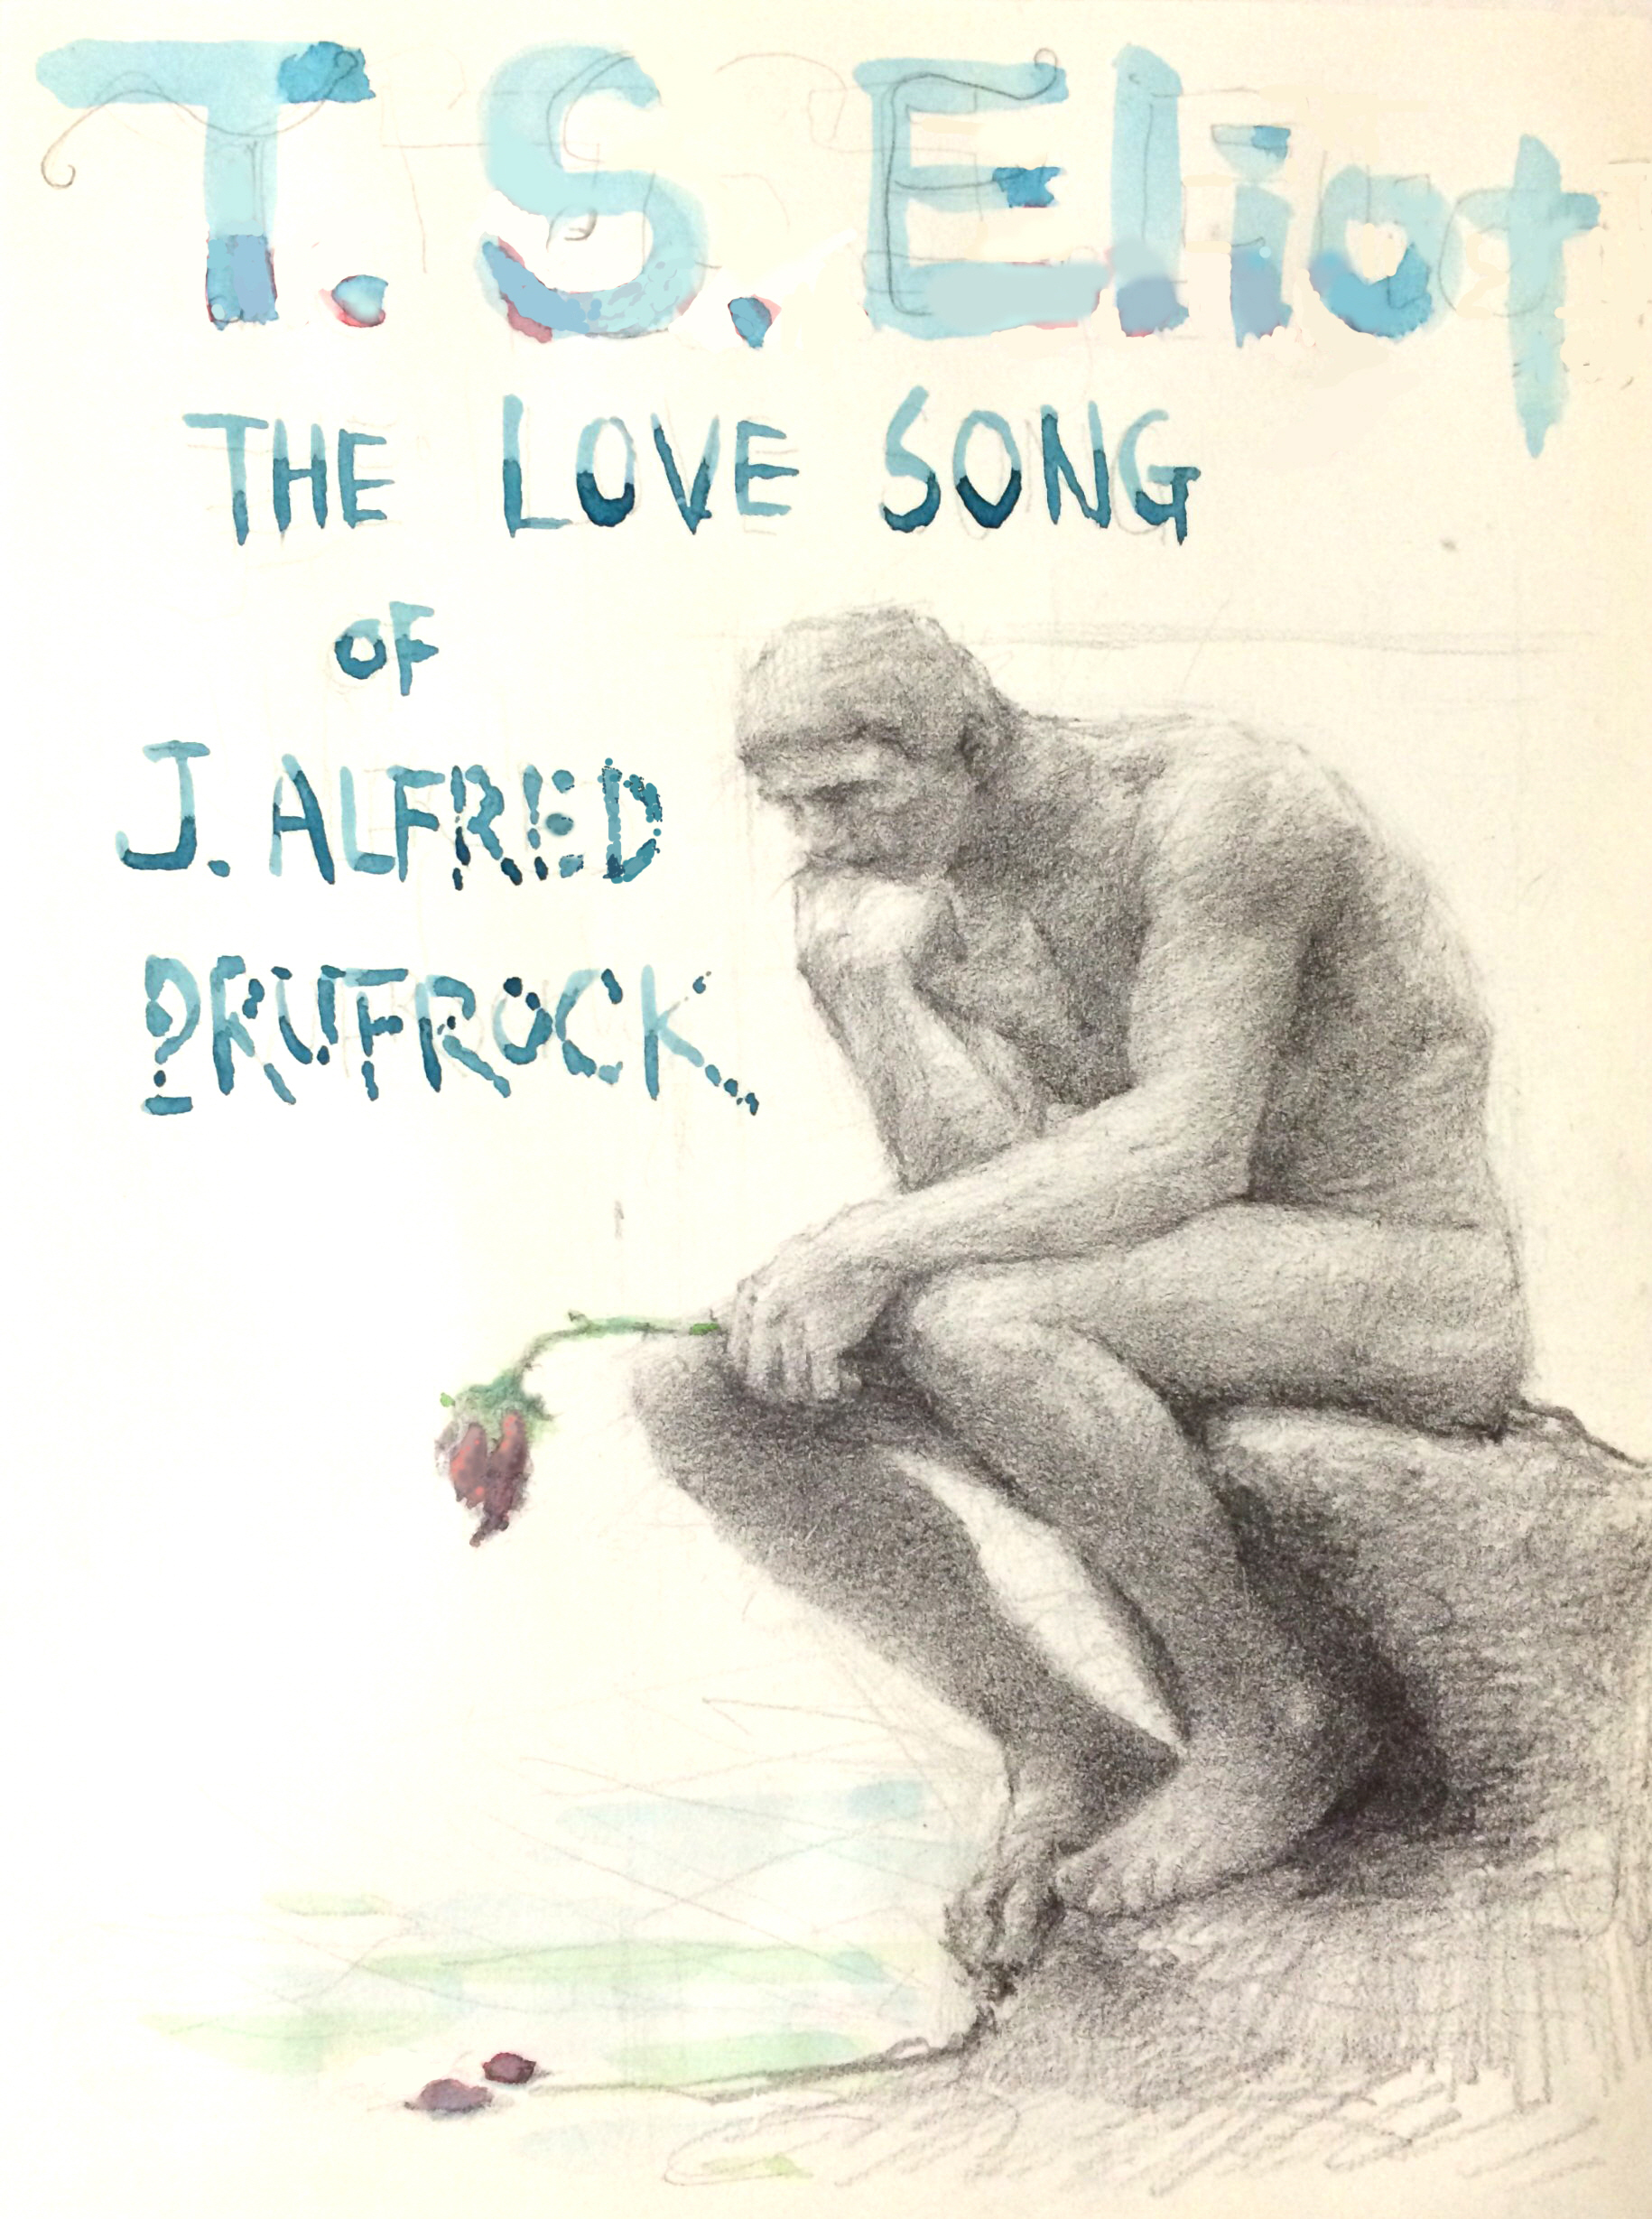 T. S. Eliot
THE LOVE SONG
OF
J. ALFRED
PRUFROCK